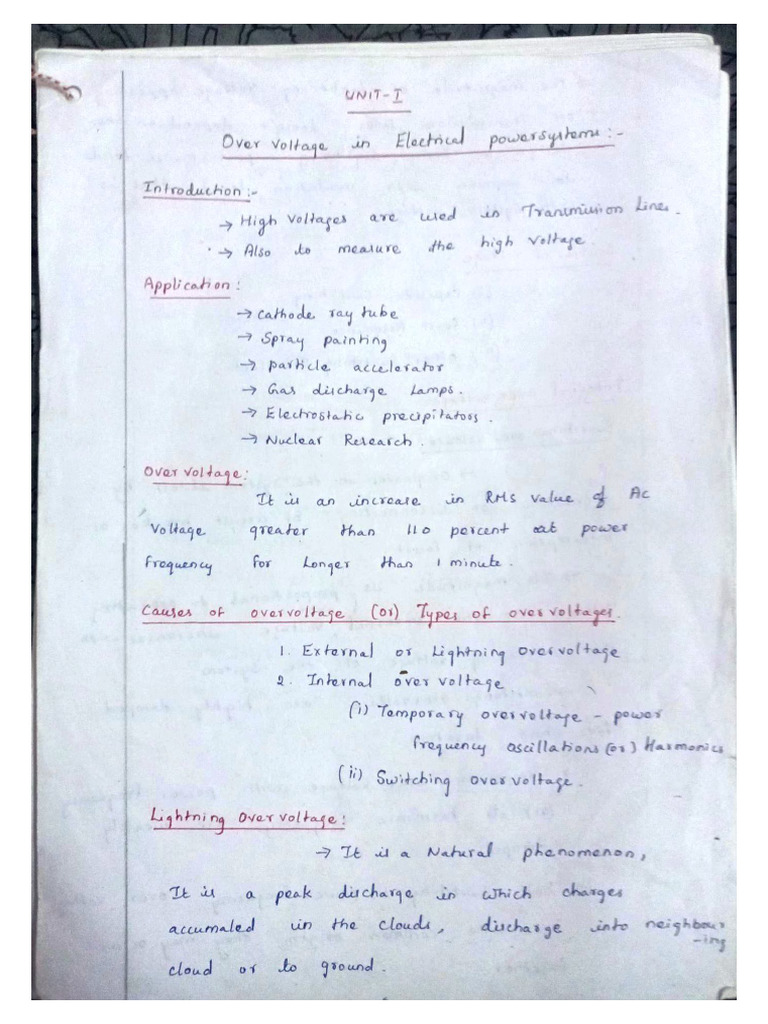 UNIT-I
Over Voltage in Electrical powersystems:-
Introduction:-
→ High Voltages are used in Transmission Lines.
→ Also to measure the high Voltage.
Application:
→ Cathode ray tube
→ Spray painting
→ Particle accelerator
→ Gas discharge Lamps.
→ Electrostatic precipitators.
→ Nuclear Research.
Over voltage:
It is an increase in RMS value of Ac
Voltage greater than 110 percent at power
frequency for Longer than 1 minute.
Causes of overvoltage (or) Types of overvoltages.
1. External or Lightning overvoltage
2. Internal over voltage
(i) Temporary overvoltage - power
frequency oscillations (or) Harmonics
(ii) Switching overvoltage.
Lightning Over Voltage:
→ It is a Natural phenomenon,
It is a peak discharge in which charges
accumaled in the clouds, discharge into neighbour
-ing
cloud or to ground.